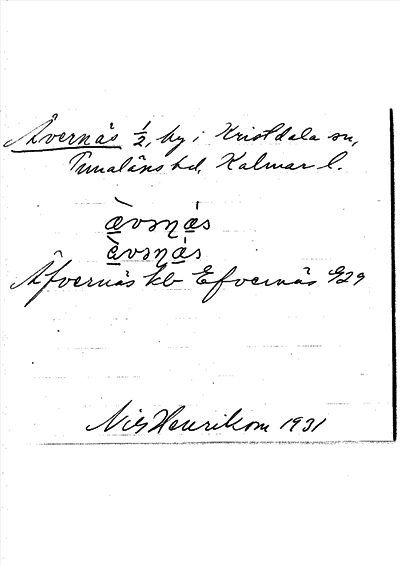 Åvernäs ½, by i Kristdala sn,
Tunaläns hd, Kalmar l.
æ̀vəɳǽs
æ̀vəɳǽs
Åfvernäs kb Efvernäs
Nils Henrikson 1931